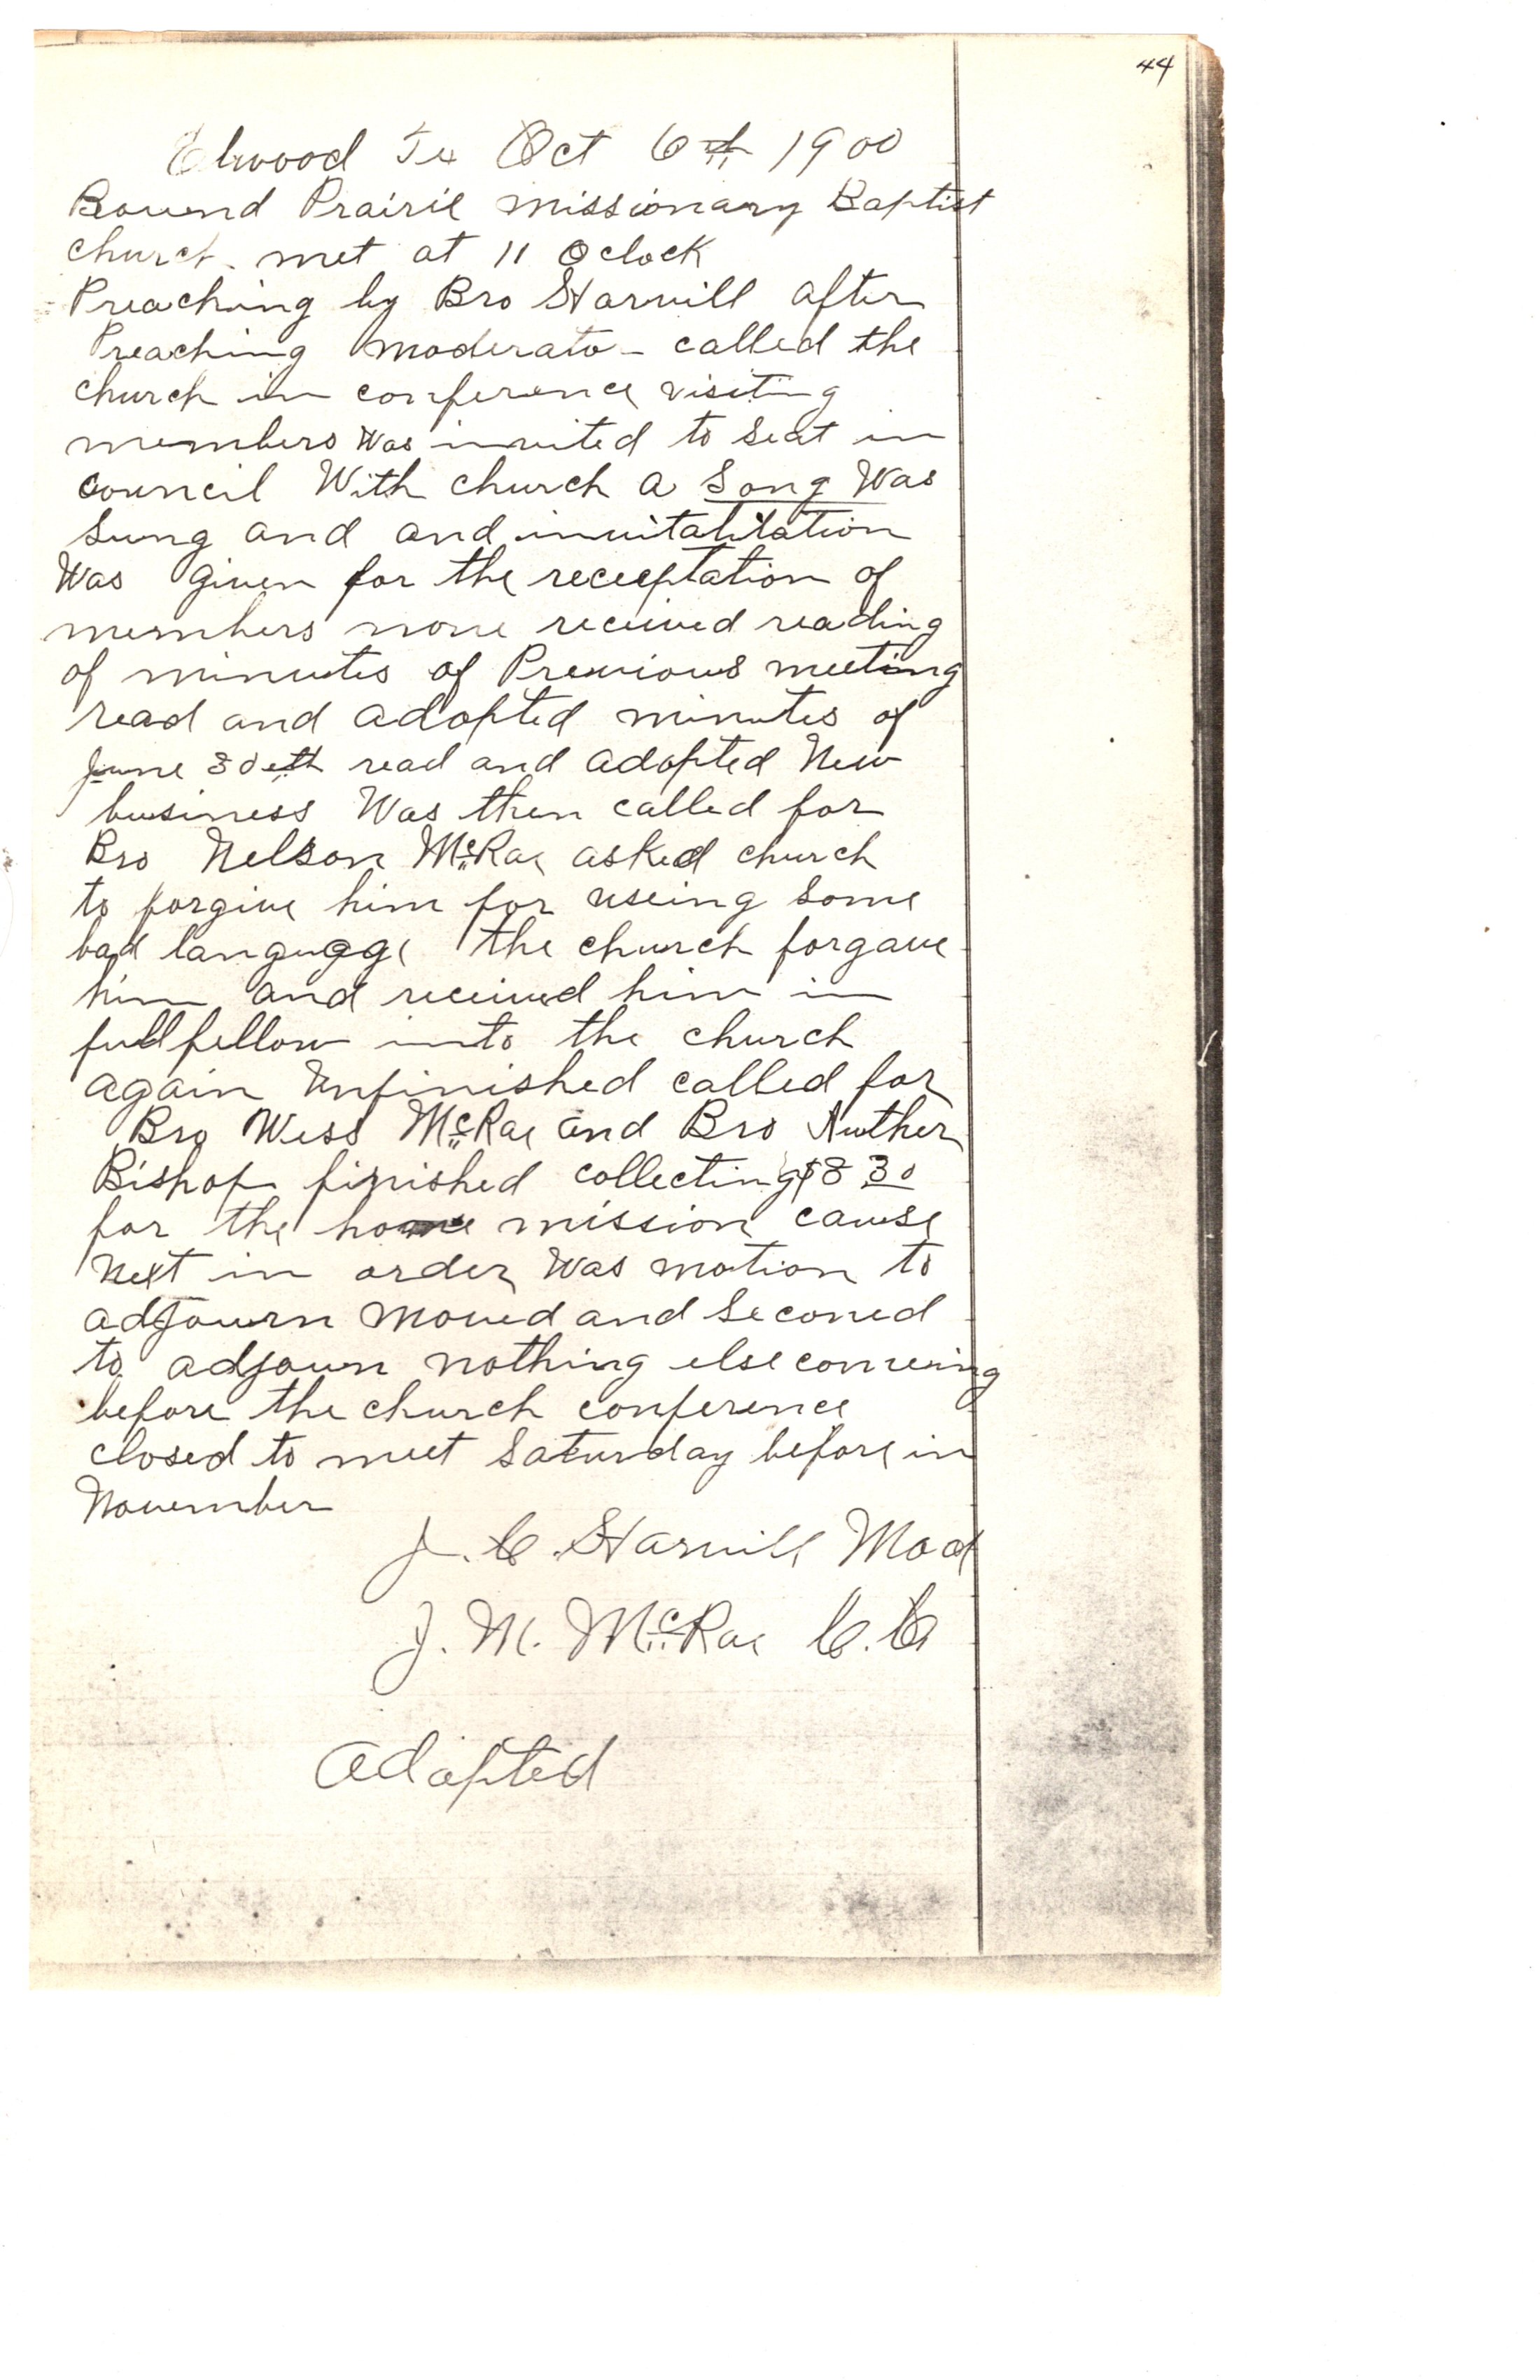 44
Elwood Tex Oct 6th 1900
Round Prairie missionary Baptist
church met at 11 Oclock
Preaching by Bro Harvill after
Preaching moderator called the
church in conference visiting
members was invited to seat in
council With church a Song Was
Sung and and invitatitation
Was given for the receeptation of
members none received reading
of minutes of Previous meeting
read and adopted minutes of
June 30eth read and adopted New
business Was then called for
Bro Nelson McRae asked church
to forgive him for useing Some
bad langugge the church forgave
him and received him in
full fellow into the church
again Unfinished called for
Bro Wess McRae and Bro Auther
Bishop finished collecting $8 30
for the home mission cause
Next in order Was motion to
adjourn moved and Seconed
to adjourn nothing else comeing
before the church conference
closed to meet Saturday before in
November
J. C. Harvill Mod
J. M. McRae C. C
Adopted